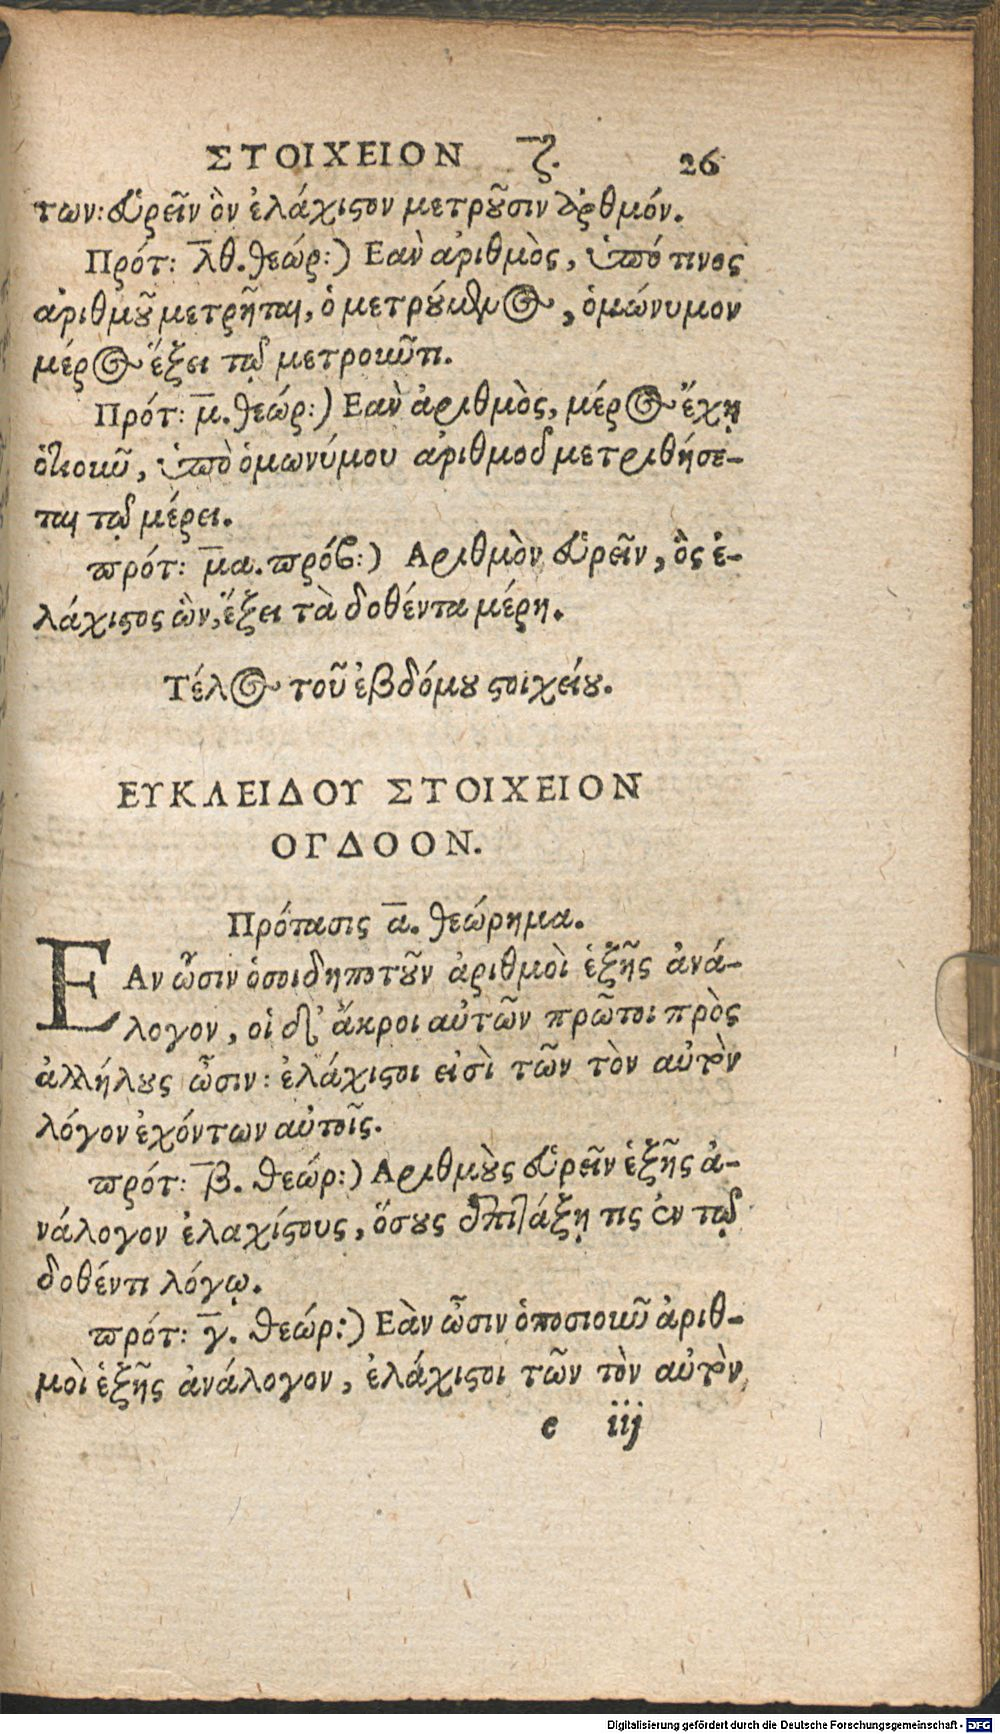 ΣΤΟΙΧΕΙΟΝ ζ. 26
των: εὑρεῖν ὃν ἐλάχιστον μετροῦσιν ἀριθμόν.
Πρότ: λθ. θεώρ:) Εαν ἀριθμὸς, ὑπό τινος
ἀριθμοῦ μετρῆται, ὁ μετρούμενος, ὁμώνυμον
μέρος ἕξει τῷ μετροῦντι.
Πρότ: μ. θεώρ:) Εαν ἀριθμὸς, μέρος ἔχῃ
ὁτιοῦν, ὑπὸ ὁμωνύμου ἀριθμοῦ μετρηθήσε-
ται τῷ μέρει.
πρότ: μα. πρόβ:) Αριθμὸν εὑρεῖν, ὃς ἐ-
λάχιστος ὢν, ἕξει τὰ δοθέντα μέρη.
Τέλος τοῦ ἑβδόμου στοιχείου.
ΕΥΚΛΕΙΔΟΥ ΣΤΟΙΧΕΙΟΝ
ΟΓΔΟΟΝ.
Πρότασις α. θεώρημα.
ΕΑν ὦσιν ὁσοιδηποτοῦν ἀριθμοὶ ἑξῆς ἀνά-
λογον, οἱ δὲ ἄκροι αὐτῶν πρῶτοι πρὸς
ἀλλήλους ὦσιν: ἐλάχιστοι εἰσὶ τῶν τὸν αὐτὸν
λόγον ἐχόντων αὐτοῖς.
πρότ: β. θεώρ:) Αριθμοὺς εὑρεῖν ἑξῆς ἀ-
νάλογον ἐλαχίστους, ὅσους ἐπιτάξῃ τις ἐν τῷ
δοθέντι λόγῳ.
πρότ: γ. θεώρ:) Εὰν ὦσιν ὁποσιοιοῦν ἀριθ-
μοὶ ἑξῆς ἀνάλογον, ἐλάχιστοι τῶν τὸν αὐτὸν
e iij
Digitalisierung gefördert durch die Deutsche Forschungsgemeinschaft - DFG